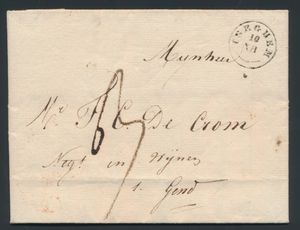 ISEGHEM
10
XII
Mynheer
Mr F. C. De Crom
Negt in Wynen
s. Gend